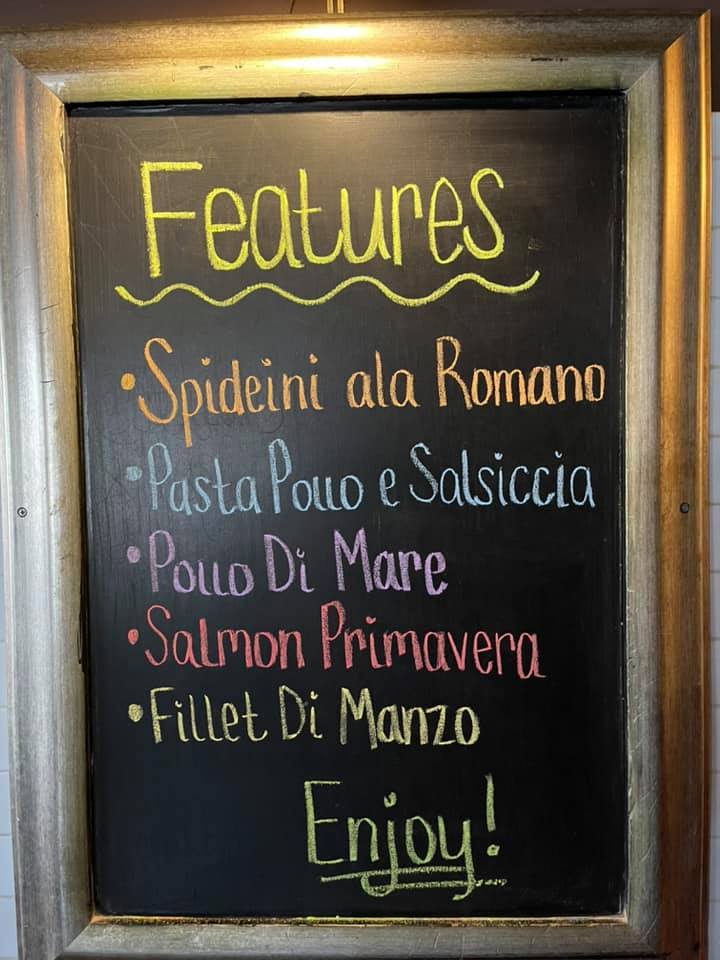 Features
• Spideini ala Romano
• Pasta Pollo e Salsiccia
• Pollo Di Mare
• Salmon Primavera
• Fillet Di Manzo
Enjoy!